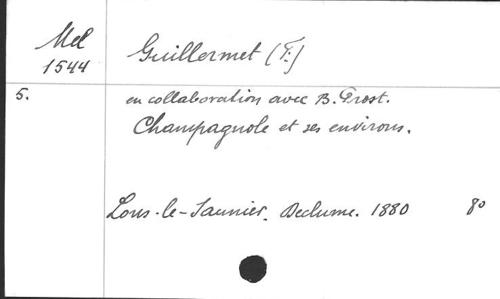 Mel
1544
Guillermet (F.)
5.
en collaboration avec B. Prost.
Champagnole et ses environs.
Lons-le-Saunier. Declume. 1880 8º